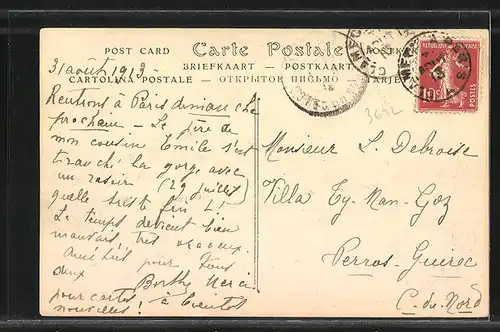 POST CARD Carte Postale POSTKARTE
BRIEFKAART - POSTKAART
CARTOLINA POSTALE - ОТКРЫТОЕ ПИСЬМО TARJE
RÉPUBLIQUE FRANÇAISE
10c
POSTES
3692
31 août 1913
Rentrons à Paris dimanche
prochain - Le père de
mon cousin Emile s'est
tranché la gorge avec
un rasoir (29 juillet)
quelle triste fin !
Le temps devient bien
mauvais, très orageux.
Amitiés pour tous
deux
Berthe Merci
pour cartes à bientôt
nouvelles !
Monsieur L. Debroise
Villa Ty-Nan-Goz
Perros-Guirec
C-du-Nord